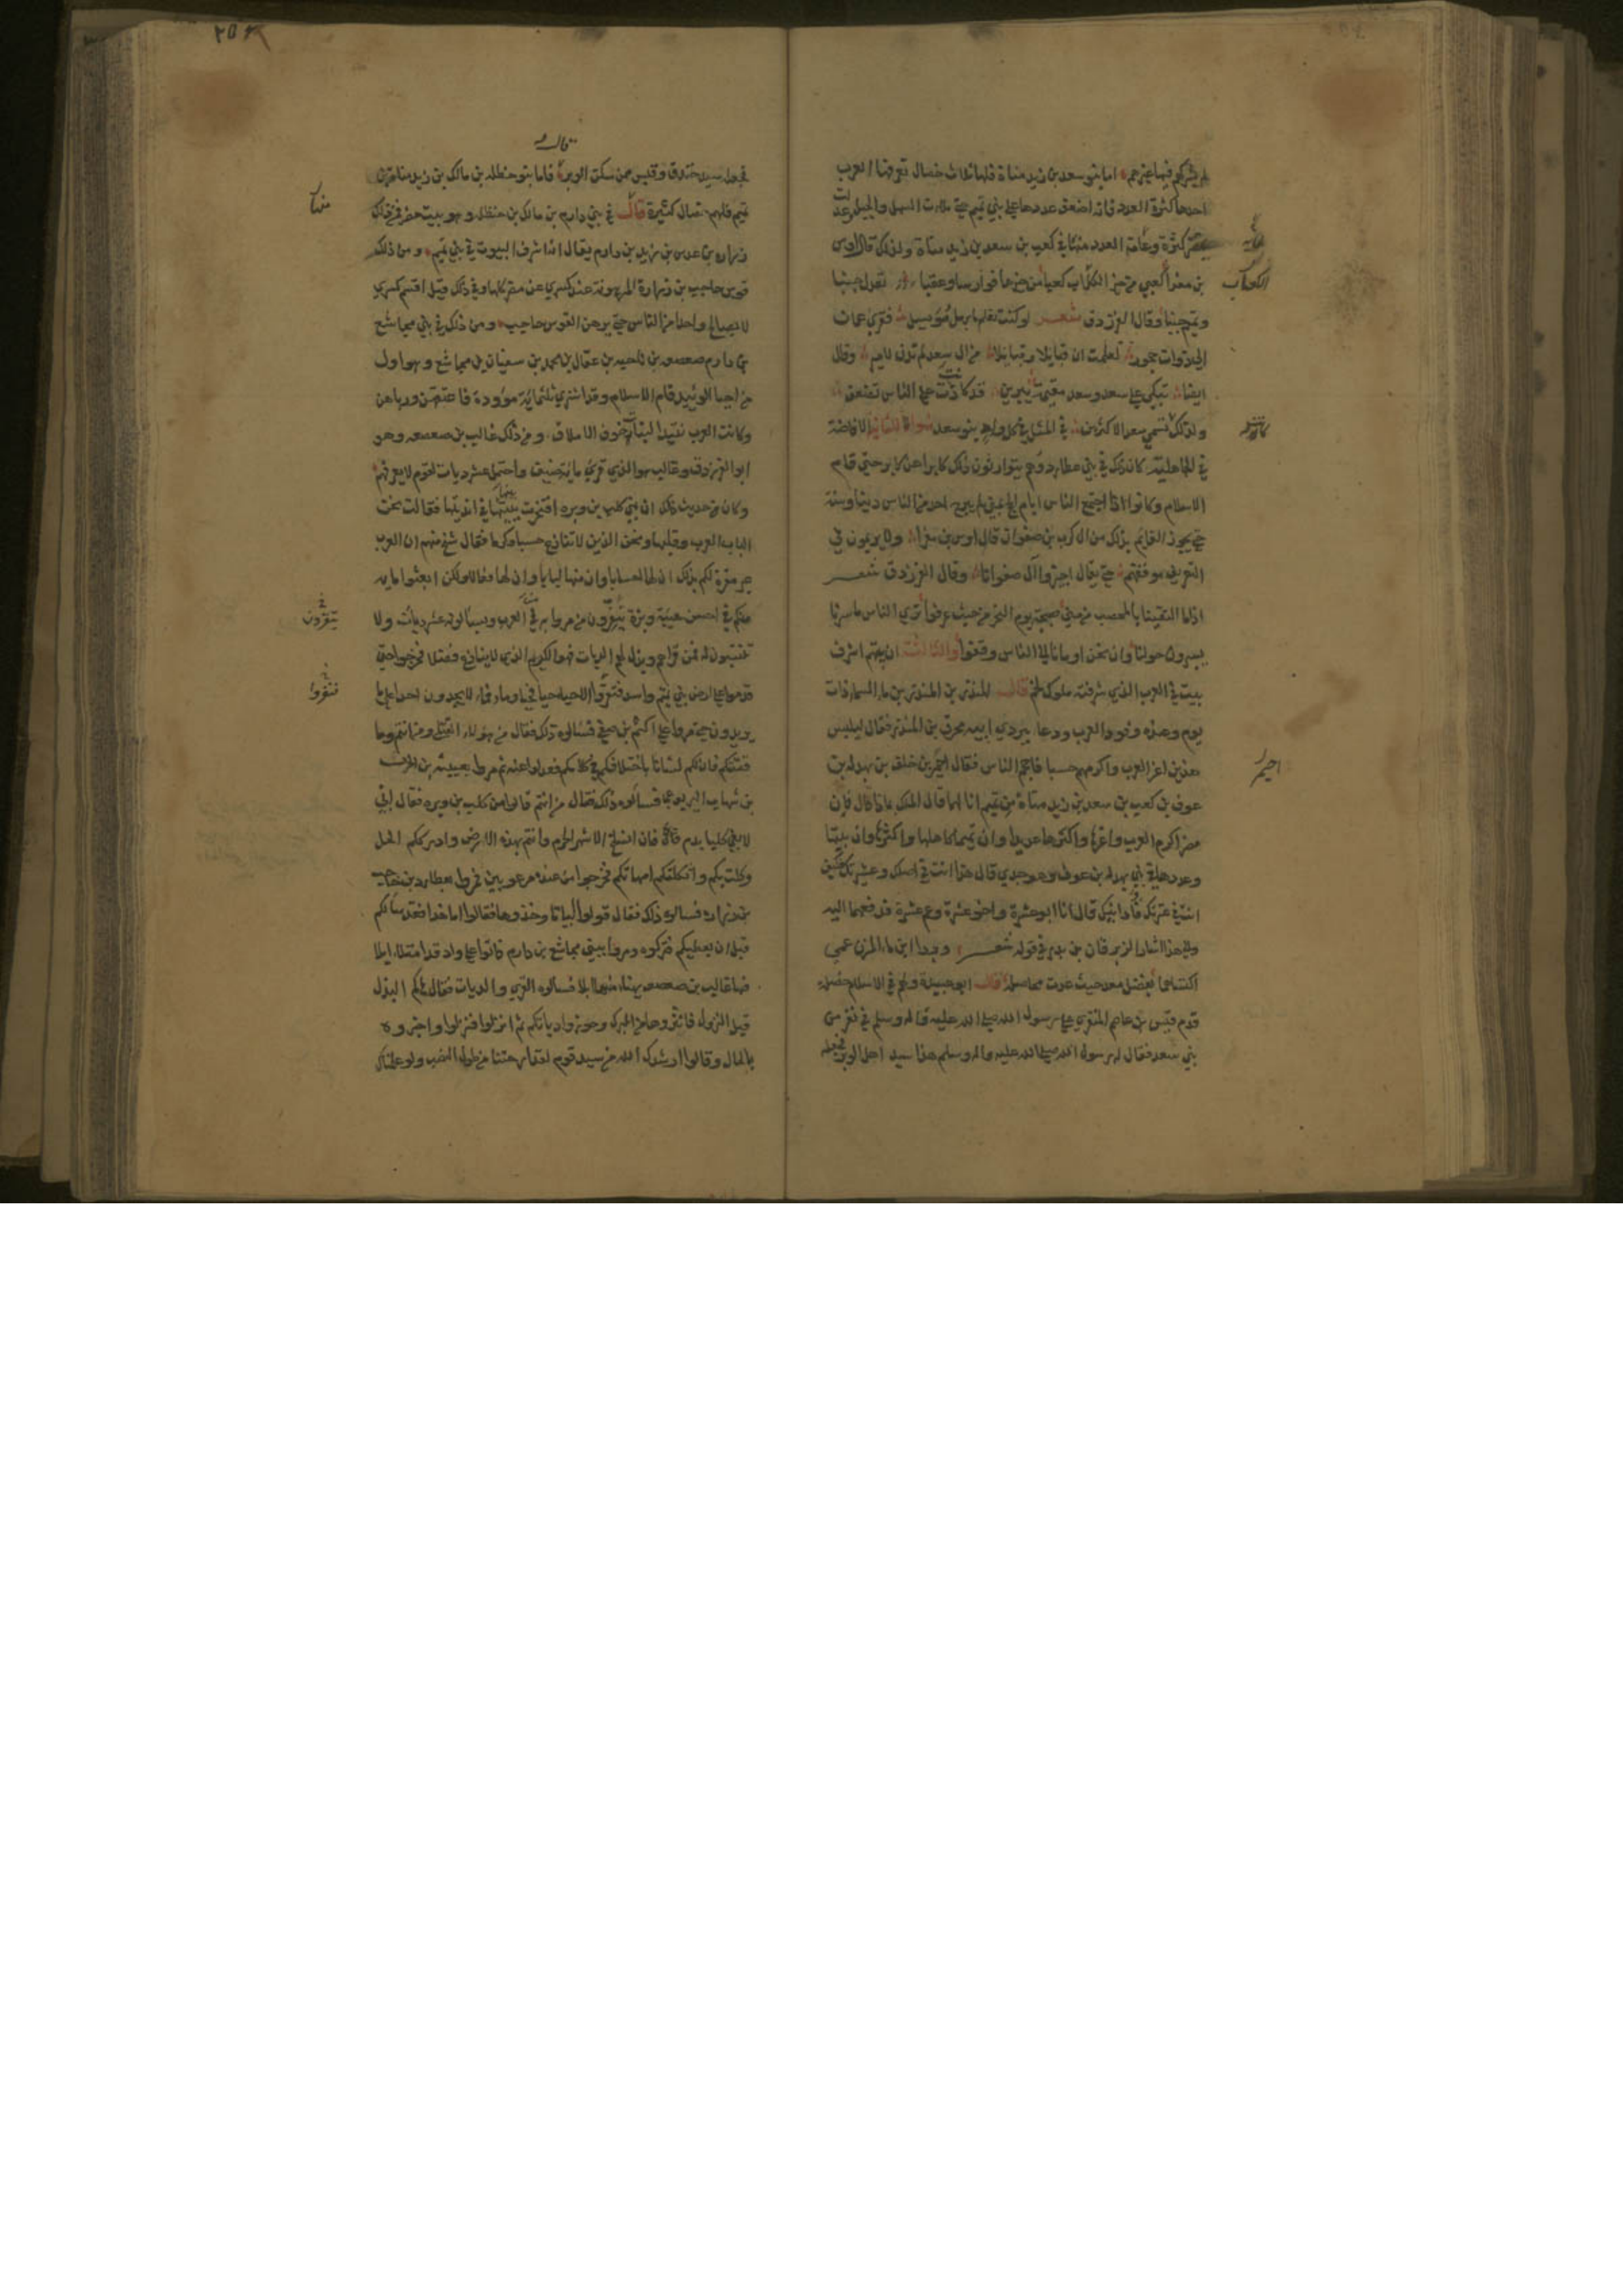 لم يشركهم فيها غيرهم اما بنو سعد بن زيد مناة فلها ثلاث خصال تعرفها العرب
احدها كثرة العدد فانه اضعف عددها على بني تميم حتى ملات السهل والجبل
كثرة وعامة العدد منها في كعب بن سعد بن زيد مناة ولذلك قال اوس
بن مغرا كعبي من خير الكعاب كعبا من خيرها فوارسا وعقبا تعدل جنبا
وتميم جنبا وقال الفرزدق شعر لو كنت تعلم ما برمل فقرى عمان
لعلمت ان قبايلا وقبايلا من ال سعد لم تدن لامير وقال
ايضا تبكي على سعد وسعد مقيمة بيبرين قد كادت على الناس تضعف
ولذلك تسمي سعد الاكثرين في المثل في كل واد بنو سعد والثانية الافاضة
في الجاهلية كان ذلك في بني عطارد وهم يتوارثون ذلك كابرا عن كابر حتى قام
الاسلام وكانوا اذا اجتمع الناس ايام الحج بمنى لم يبرح احد من الناس دينا وسنة
حتى يجوز القايم بذلك من ال كرب بن صفوان قال اوس بن مغرا ولا يريمون في
التعريف موقفهم حتى يقال اجيزوا آل صفوانا وقال الفرزدق شعر
اذا ما التقينا بالمحصب من منى صبيحة يوم النحر من حيث عرفوا ترى الناس ما سرنا
يسيرون حولنا وان نحن اومانا الى الناس وقفوا والثالثة ان بيتهم اشرف
بيت في العرب الذي شرفته ملوك لخم قال المنذر بن المنذر بن ماء السماء ذات
يوم وعنده وفود العرب ودعا ببردي ابيه محرق بن المنذر فقال ليلبس
هذين اعز العرب واكرمهم حسبا فاحجم الناس فقال احيمر بن خلف بن بهدلة بن
عوف بن كعب بن سعد بن زيد مناة من تميم انا لهما قال الملك بماذا قال فان
مضر اكرم العرب واعزها واكثرها عديدا وان تميما كاهلها واكثرها وان بيتها
وعددها في بني بهدلة بن عوف وهو جدي قال هذا انت في اصلك وعشيرتك فكيف
انت في عترتك قال انا ابو عشرة واخو عشرة وعم عشرة فدفعهما اليه
والى هذا اشار الزبرقان بن بدر في قوله شعر وبردا ابن ماء المزن عمي
اكتساهما بفضل معد حيث عدت محاصله قال ابو عبيدة ولهم في الاسلام خصلة
قدم قيس بن عاصم المنقري على رسول الله صلى الله عليه واله وسلم في نفر من
بني سعد فقال له رسول الله صلى الله عليه واله وسلم هذا سيد اهل الوبر فجعله
الكعاب
احيمر
٢٥٢
قال
فجعله سيد خندق وقيس ممن سكن الوبر فاما بنو حنظله بن مالك بن زيد مناة بن
تميم فلهم خصال كثيرة قال في بني دارم بن مالك بن حنظله وهو بيت مضر فمن ذلك
زرارة بن عدس بن زيد بن دارم يقال انه اشرف البيوت في بني تميم ومن ذلك
قوس حاجب بن زرارة المرهونة عند كسري عن مضر كلها وفي ذلك قيل اقسم كسري
لا يصالح واحدا من الناس حتى يرهن القوس حاجب ومن ذلك في بني مجاشع
بن دارم صعصعه بن ناجيه بن عقال بن محمد بن سفيان بن مجاشع وهو اول
من احيا الوئيد قام الاسلام وقد اشترى ثلثماية مؤودة فاعتقهن ورباهن
وكانت العرب تئيد البنات خوف الاملاق ومن ذلك غالب بن صعصعه وهو
ابو الفرزدق وغالب هو الذي قرى ماية ضيف واحتمل عشر ديات لقوم لا يعرفهم
وكان من حديث ذلك ان بني كلب بن وبره افتخرت بينها في انديتها فقالت نحن
لباب العرب وقلبها ونحن الذين لا ننازع حسبا وكرما فقال شيخ منهم ان العرب
غير مقرة لكم بذلك ان لها احسابا وان منها لبابا وان لها فعالا ولكن ابعثوا ماية
منكم في احسن هيئة وبزة ينفرون من مروا به في العرب ويسألونه عشر ديات ولا
ينتسبون له فمن قراهم وبذل لهم الديات فهو الكريم الذي لا ينازع فضلا فخرجوا حتى
قدموا على ارض بني تميم واسد فنفروا الاحياء حيا فحيا وماء فماء لا يجدون احدا على ما
يريدون حتى مروا على اكثم بن صيفي فسألوه ذلك فقال من هؤلاء القتلى ومن انتم وما
قصتكم فان لكم لشانا باختلافكم في كلامكم فعدلوا عنه ثم مروا بعتيبة بن الحرث
بن شهاب اليربوعي فسألوه ذلك فقال من انتم قالوا من كلب بن وبره فقال اني
لابغي كلبا بدم فان انسلخ الاشهر الحرم وانتم بهذه الارض وادرككم الخيل
نكلت بكم واثكلتكم امهاتكم فخرجوا من عنده مرعوبين فمروا بعطارد بن حاجب
بن زرارة فسالوه ذلك فقال قولوا بيانا وخذوها فقالوا اما هذا فقد سالكم
قبل ان يعطيكم فتركوه ومروا ببني مجاشع بن دارم فاتوا على واد قد امتلا ابلا
فيها غالب بن صعصعه يهنا منها ابلا فسالوه القرى والديات فقال هاكم البزل
قبل النزول فابتزوها من البرك وحوزوا دياتكم ثم انزلوا فنزلوا واخبروه
بالحال وقالوا ارشدك الله من سيد قوم لقد ارحتنا من طول النصب ولو علمنا
ينفرون
فنفروا